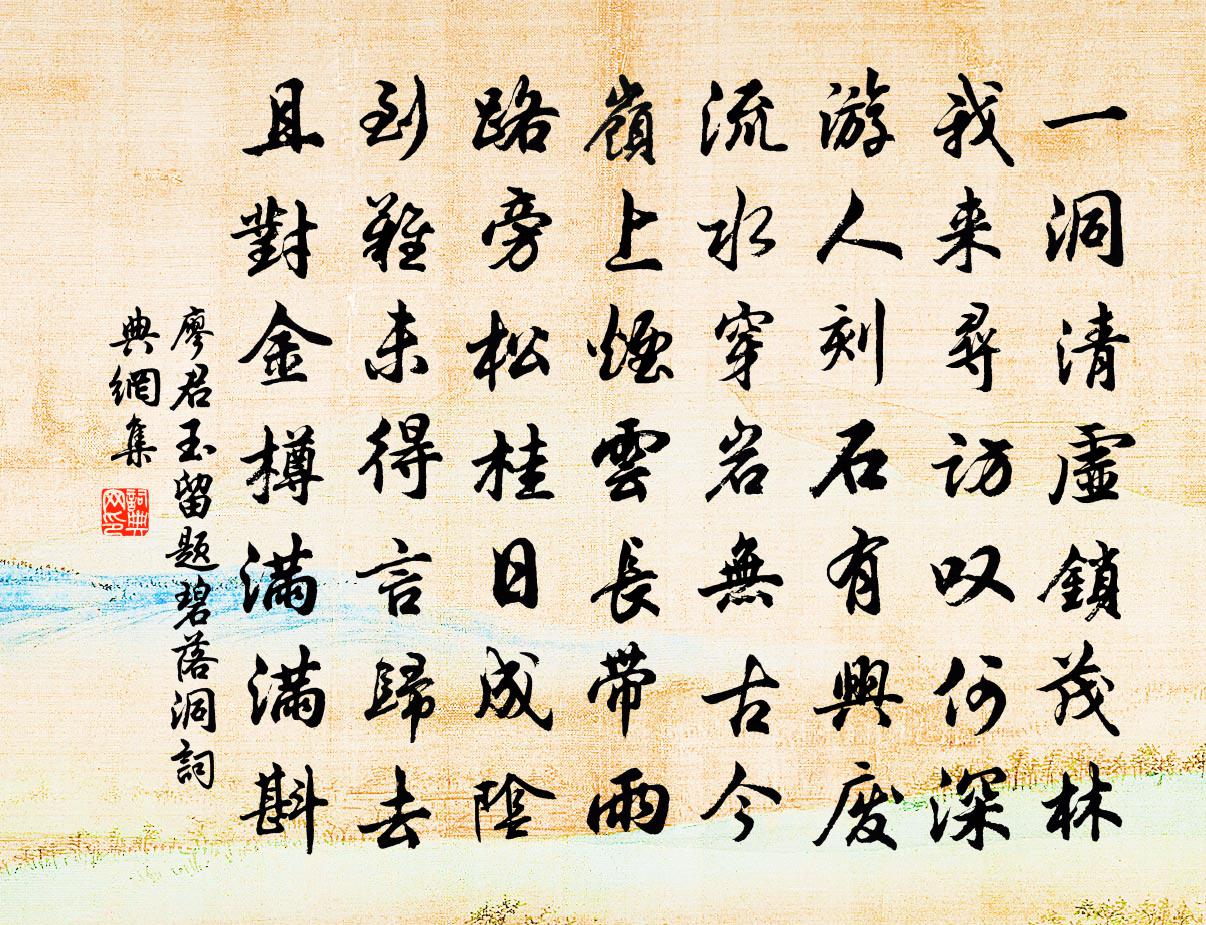 一洞清虛鎖茂林
我来尋訪叹何深
游人刻石有興废
流水穿岩無古今
嶺上煙雲長帶雨
路旁松桂日成陰
到難未得言歸去
且對金樽滿滿斟
廖君玉留题碧落洞詞
典網集
詞典
网印